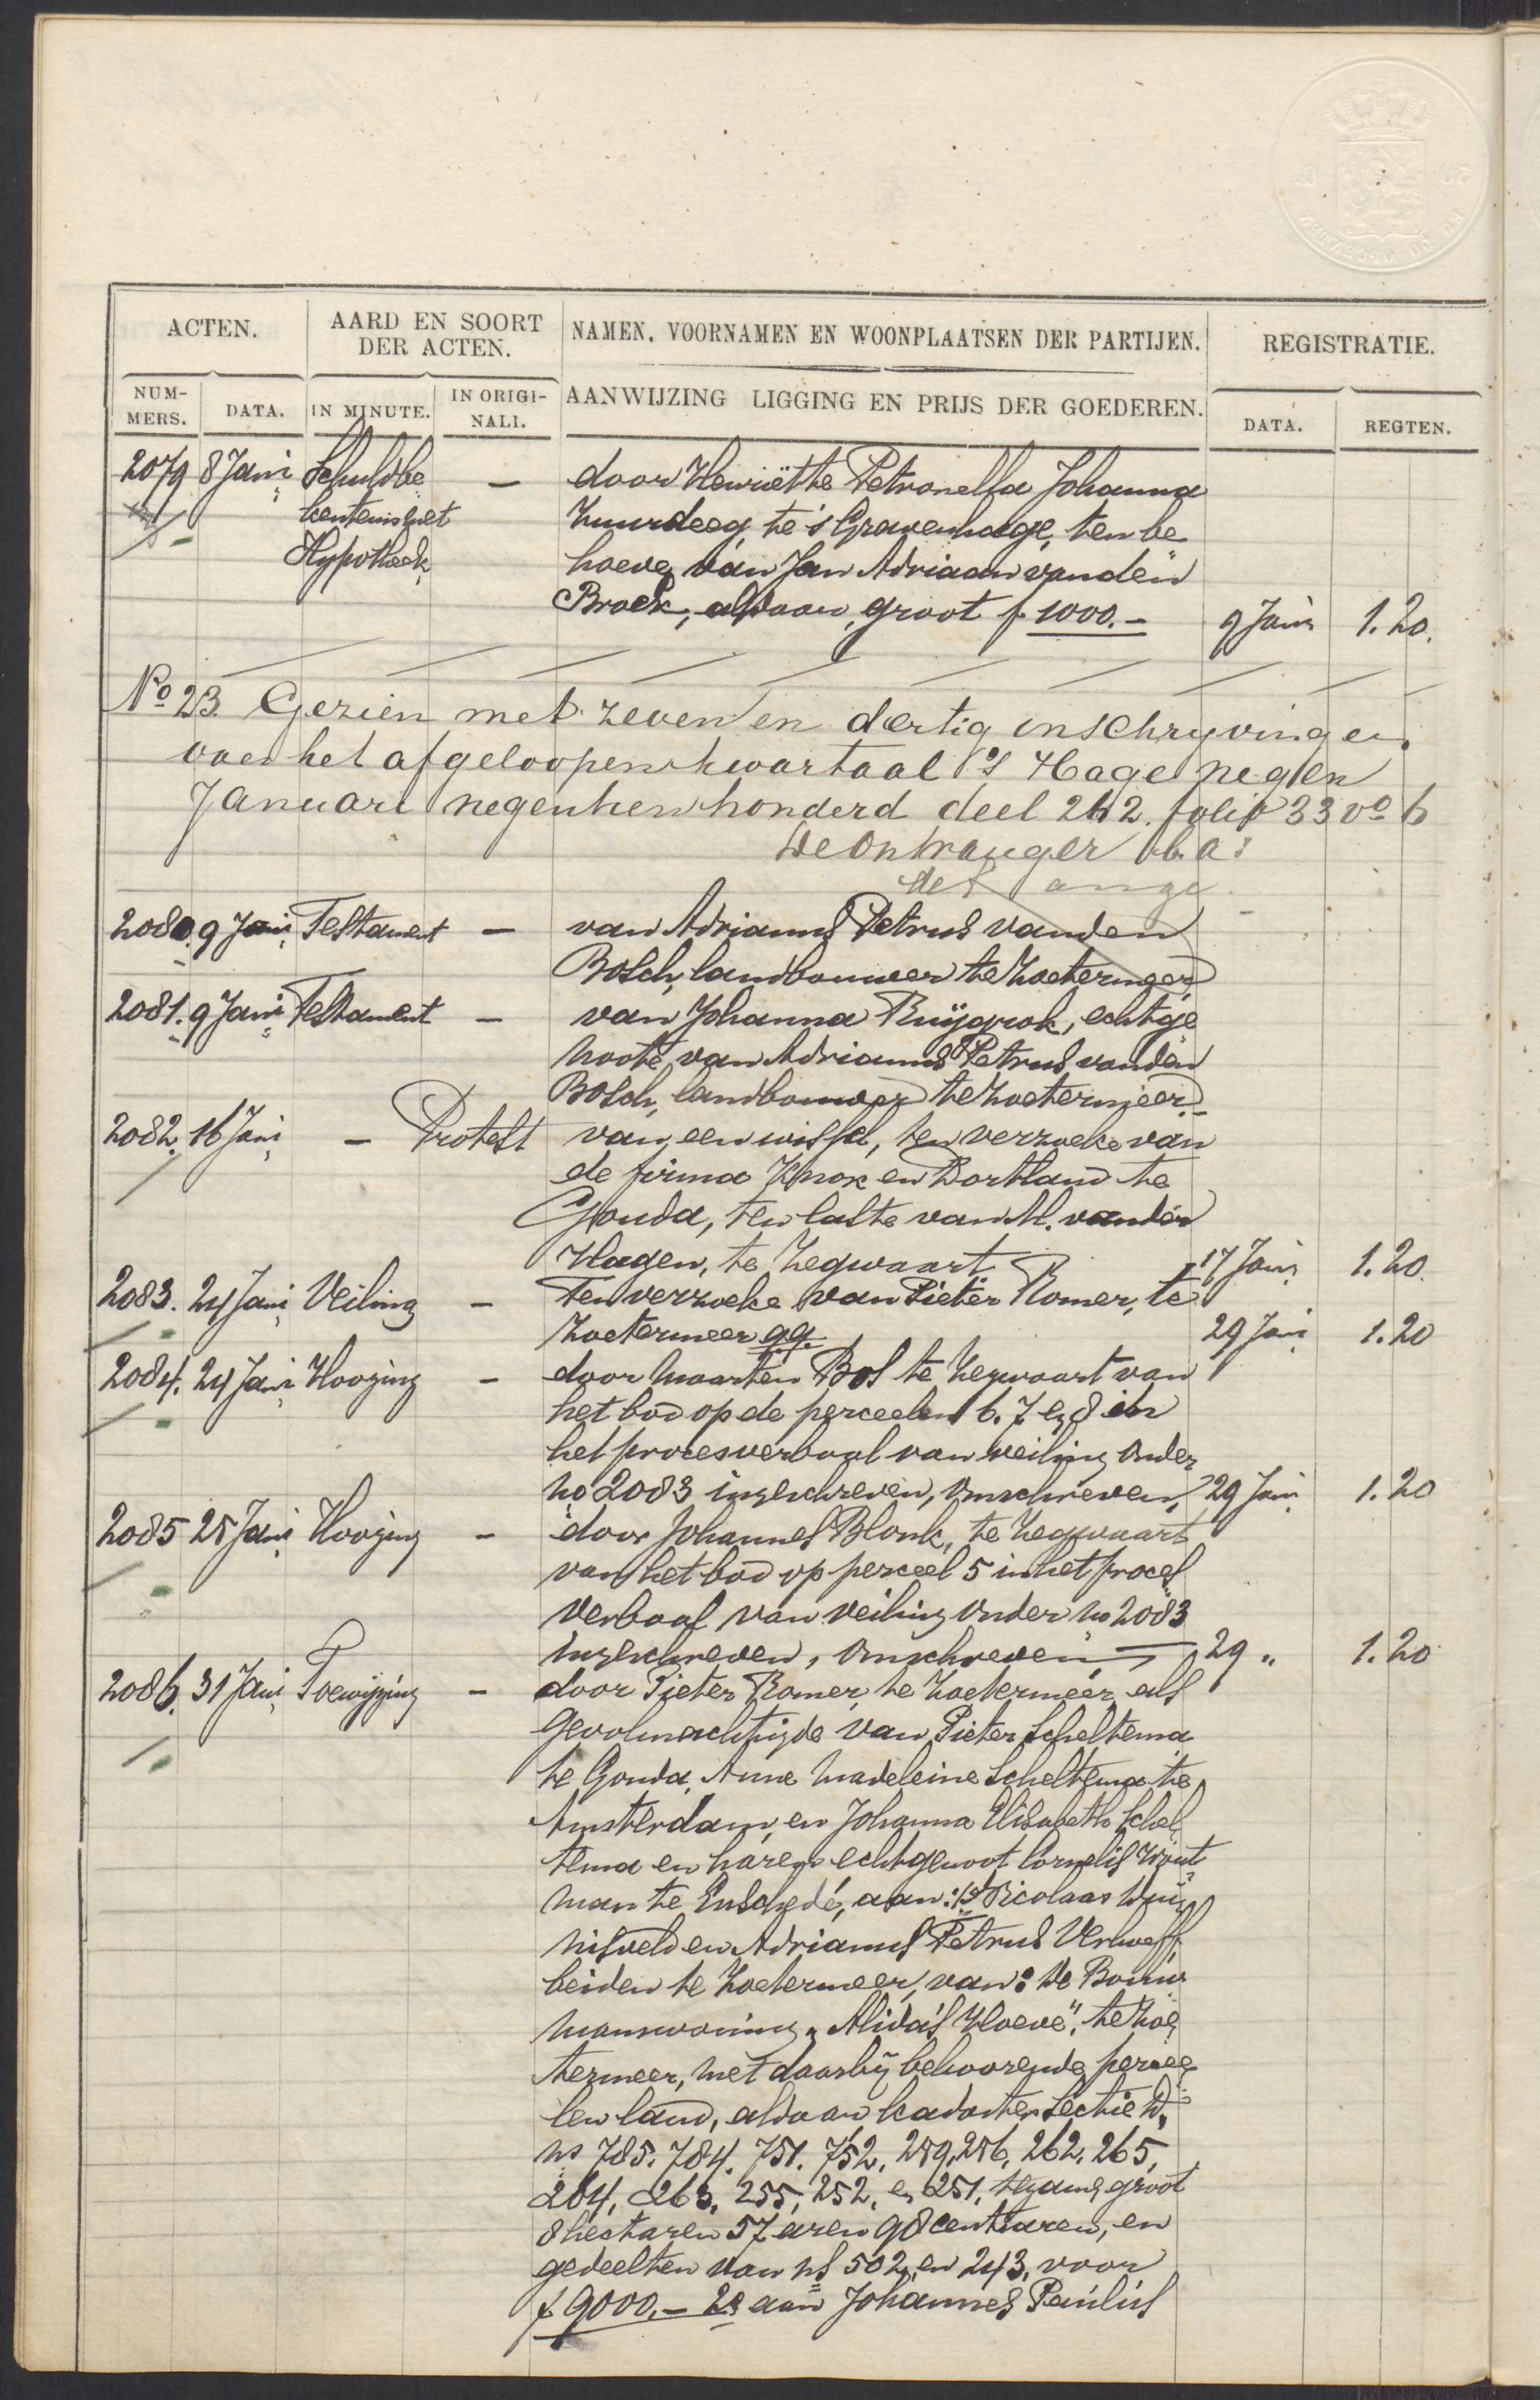 ACTEN.
AARD EN SOORT
DER ACTEN.
NAMEN, VOORNAMEN EN WOONPLAATSEN DER PARTIJEN.
REGISTRATIE.
NUM-
MERS.
DATA.
IN MINUTE.
IN ORIGI-
NALI.
AANWIJZING LIGGING EN PRIJS DER GOEDEREN.
DATA.
REGTEN.
2079 8 Jani Schuldbe - door Henriëtte Petronella Johanna
kentenis met te 's Gravenhage, ten be
Hypotheek hoeve van Jan Adriaan van den
Broek, aldaar, groot f 1000.- 9 Jani 1.20.
No 23. Gezien met zeven en dertig inschryvingen
voor het afgeloopen kwartaal 's Hage negen
Januari negentienhonderd deel 262. folio 33 vo 6
De Ontvanger b.a:
2080. 9 Jani Testament - van Adrianus Petrus van den
Bosch, landbouwer te Zoetermeer
2081. 9 Jani Testament - van Johanna Ruijgrok, echtge
noote van Adrianus Petrus van den
Bosch, landbouwer te Zoetermeer.-
2082. 16 Jani - Protest van een wissel, ten verzoeke van
de firma Knox en Dortland te
Gouda, ten laste van M. van der
Hagen, te Zegwaart 17 Jani 1.20.
2083. 24 Jani Veiling - Ten verzoeke van Pieter Romer, te
Zoetermeer qq. 29 Jani 1.20
2084. 24 Jani Hooging - door Maarten Bos te Zegwaart van
het bod op de perceelen 6. 7 en 8 in
het procesverbaal van veiling onder
no 2083 ingeschreven, omschreven, 29 Jani 1.20
2085 25 Jani Hooging - door Johannes Blonk, te Zegwaart
van het bod op perceel 5 in het proces
verbaal van veiling onder no 2083
ingeschreven, omschreven 29 „ 1.20
2086. 31 Jani Toewijzing - door Pieter Romer, te Zoetermeer, als
gevolmachtigde van Pieter Scheltema
te Gouda, Anne Madeleine Scheltema te
Amsterdam, en Johanna Elisabeth Schel
tema en haren echtgenoot Cornelis Wout
man te Enschedé, aan: 1o Nicolaas
en Adrianus Petrus Verhoeff,
beiden te Zoetermeer, van: De Bouw
manswoning „Alida's Hoeve", te Zoe
termeer, met daarbij behoorende percee
len land, aldaar kadaster Sectie D.
ns 785. 784. 751. 752, 259, 256, 262, 265,
264, 263, 255, 252, en 251, tezamen groot
8 hectaren 57 aren 98 centiaren, en
gedeelten van ns 502 en 243, voor
f 9000.- 2o aan Johannes Paulus